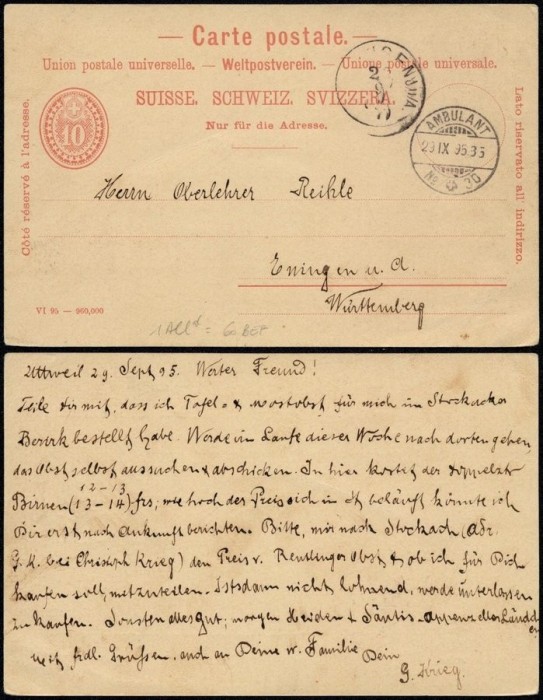 — Carte postale. —
Union postale universelle. — Weltpostverein. — Unione postale universale.
SUISSE. SCHWEIZ. SVIZZERA.
Nur für die Adresse.
Côté réservé à l'adresse.
Lato riservato all' indirizzo.
10
AMBULANT
29 IX 95.
No 30
Herrn Oberlehrer Reihle
Eningen u. A.
Württemberg
VI 95 — 960,000
Uttweil 29. Sept 95. Werter Freund!
Teile dir mit, dass ich Tafel- & Mostobst für mich im Stockacher
Bezirk bestellt habe. Werde im Laufe dieser Woche nach dorten gehen,
das Obst selbst aussuchen & abschicken. In hier kostet der Doppelztr
12-13
Birnen (13-14) frs; wie hoch der Preis sich in St beläuft könnte ich
Dir erst nach Ankunft berichten. Bitte, mir nach Stockach (Adr.
G. K. bei Christoph Krieg) den Preis v. Reutlinger Obst & ob ich für Dich
kaufen soll, mitzuteilen. Ists dann nicht lohnend, werde unterlassen
zu kaufen. Sonsten alles gut; morgen Heiden & Säntis-
mit frdl. Grüssen, auch an Deine w. Familie Dein
G. Krieg.